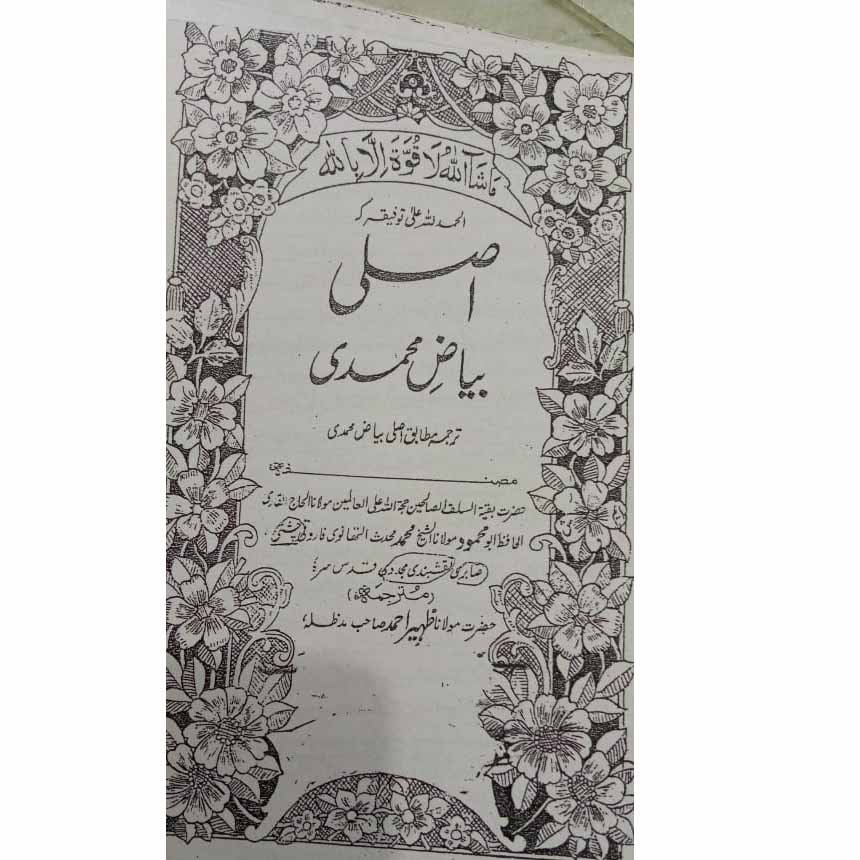 ماشآءاللہُ لَا قُوَّۃَ اِلَّا بِاللہ
الحمد للہ علیٰ توفیقہ کہ
اصلی
بیاضِ محمدی
ترجمہ مطابق اصلی بیاض محمدی
مصنفہ
حضرت بقیۃ السلف الصالحین حجۃ اللہ علی العالمین مولانا الحاج القاری
الحافظ ابو محمود مولانا الشیخ محمد محدث التھانوی فاروقی چشتی
صابری نقشبندی مجددی قدس سرہٗ
(مترجمہ)
حضرت مولانا ظہیر احمد صاحب مدظلہٗ